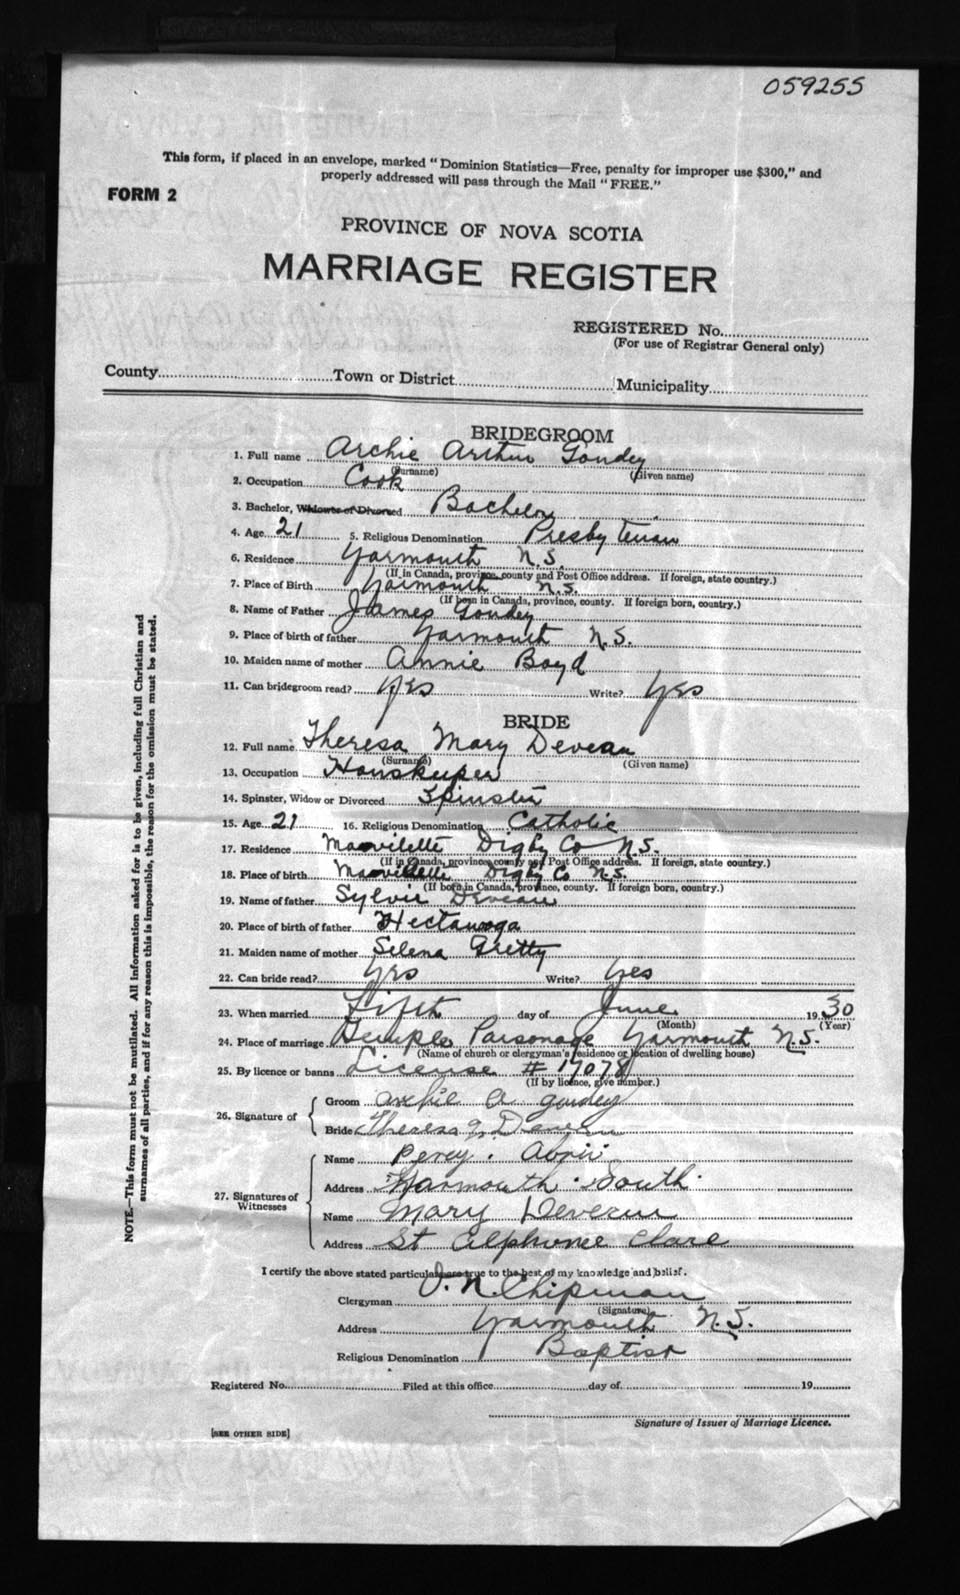 059255
This form, if placed in an envelope, marked "Dominion Statistics—Free, penalty for improper use $300," and
properly addressed will pass through the Mail "FREE."
FORM 2
PROVINCE OF NOVA SCOTIA
MARRIAGE REGISTER
REGISTERED No.
(For use of Registrar General only)
County Town or District Municipality
BRIDEGROOM
1. Full name Archie Arthur Goudey
(Surname) (Given name)
2. Occupation Cook
3. Bachelor, Widower or Divorced Bachelor
4. Age 21 5. Religious Denomination Presbyterian
6. Residence Yarmouth N.S.
(If in Canada, province, county and Post Office address. If foreign, state country.)
7. Place of Birth Yarmouth N.S.
(If born in Canada, province, county. If foreign born, country.)
8. Name of Father James Goudey
9. Place of birth of father Yarmouth N.S.
10. Maiden name of mother Annie Boyd
11. Can bridegroom read? yes Write? yes
BRIDE
12. Full name Theresa Mary Deveau
(Surname) (Given name)
13. Occupation Houskeeper
14. Spinster, Widow or Divorced Spinster
15. Age 21 16. Religious Denomination Catholic
17. Residence Mavilette Digby Co N.S.
(If in Canada, province, county and Post Office address. If foreign, state country.)
18. Place of birth Mavilette Digby Co N.S.
(If born in Canada, province, county. If foreign born, country.)
19. Name of father Sylvie Deveau
20. Place of birth of father Hectanooga
21. Maiden name of mother Selena
22. Can bride read? Yes Write? Yes
23. When married Fifth day of June 1930
(Month) (Year)
24. Place of marriage Temple Parsonage Yarmouth N.S.
(Name of church or clergyman's residence or location of dwelling house)
25. By licence or banns License # 17078
(If by licence, give number.)
26. Signature of
Groom Archie A goudey
Bride Theresa Deveau
27. Signatures of
Witnesses
Name Percy
Address Yarmouth South
Name Mary Deveau
Address St Alphonce Clare
I certify the above stated particulars are true to the best of my knowledge and belief.
Clergyman O. N. Chipman
(Signature)
Address Yarmouth N.S.
Religious Denomination Baptist
Registered No. Filed at this office day of 19
Signature of Issuer of Marriage Licence.
[SEE OTHER SIDE]
NOTE.—This form must not be mutilated. All information asked for is to be given, including full Christian and
surnames of all parties, and if for any reason this is impossible, the reason for the omission must be stated.